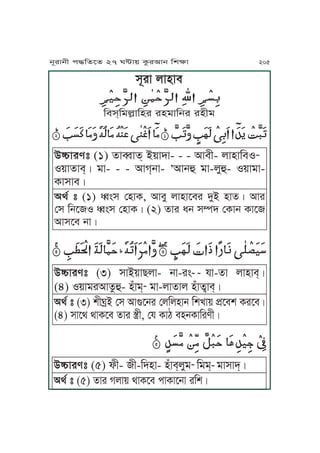 নূরানী পদ্ধতিতে ২৭ ঘণ্টায় কুরআন শিক্ষা ২০৫
সূরা লাহাব
بِسْمِ اللهِ الرَّحْمٰنِ الرَّحِيْمِ
বিসমিল্লাহির রহমানির রহীম
تَبَّتْ يَدَآ اَبِىْ لَهَبٍ وَّتَبَّ ۞ مَآ اَغْنٰى عَنْهُ مَالُهٗ وَمَا كَسَبَ ۞
উচ্চারণঃ (১) তাব্বাত্ ইয়াদা- - - আবী- লাহাবিও-
ওয়াতাব্। মা- - - আগ্না- 'আনহু মা-লুহূ- ওয়ামা-
কাসাব।
অর্থ ঃ (১) ধ্বংস হোক, আবু লাহাবের দুই হাত। আর
সে নিজেও ধ্বংস হোক। (২) তার ধন সম্পদ কোন কাজে
আসবে না।
سَيَصْلٰى نَارًا ذَاتَ لَهَبٍ ۞ وَّامْرَاَتُهٗ ؕ حَمَّالَةَ الْحَطَبِ ۞
উচ্চারণঃ (৩) সাইয়াছলা- না-রং- - যা-তা লাহাব্।
(৪) ওয়ামরআতুহূ- হাঁম্- মা-লাতাল হাঁত্বাব্।
অর্থ ঃ (৩) শীঘ্রই সে আগুনের লেলিহান শিখায় প্রবেশ করবে।
(৪) সাথে থাকবে তার স্ত্রী, যে কাঠ বহনকারিণী।
فِىْ جِيْدِهَا حَبْلٌ مِّنْ مَّسَدٍ ۞
উচ্চারণঃ (৫) ফী- জী-দিহা- হাঁব্লুম- মিম্- মাসাদ্।
অর্থ ঃ (৫) তার গলায় থাকবে পাকানো রশি।